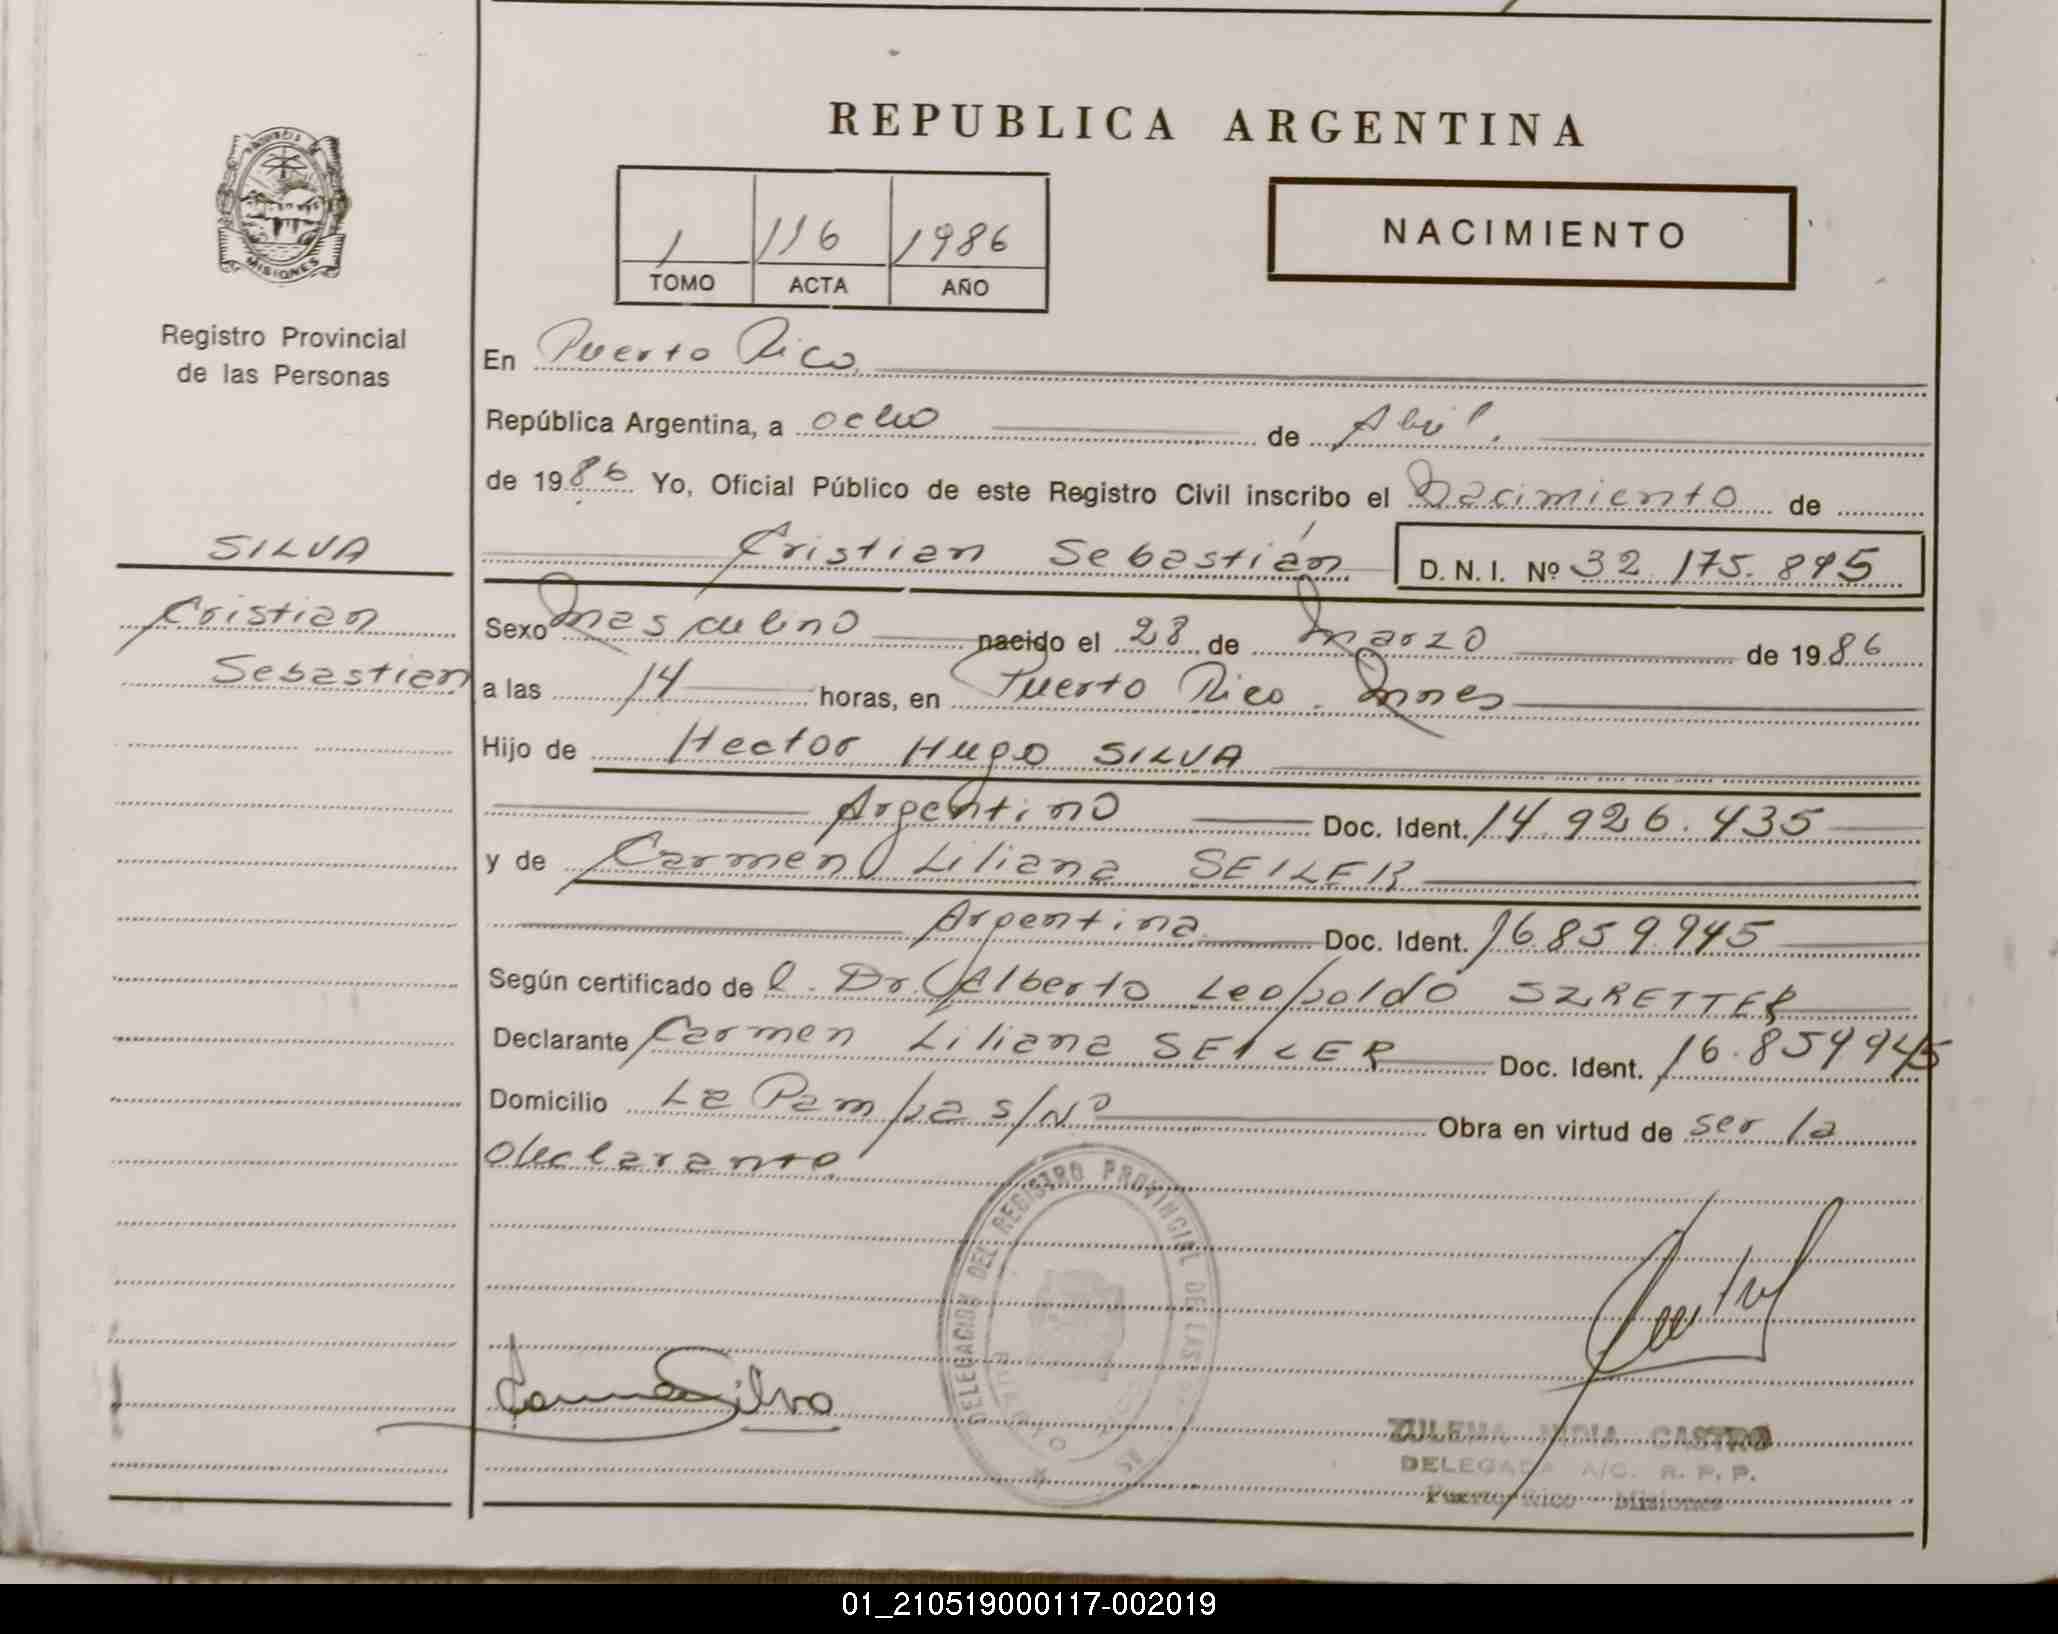 REPUBLICA ARGENTINA
1 116 1986
TOMO ACTA AÑO
NACIMIENTO
PROVINCIA DE
MISIONES
Registro Provincial
de las Personas
SILVA
Cristian
Sebastian
En Puerto Rico
República Argentina, a ocho de Abril.
de 1986 Yo, Oficial Público de este Registro Civil inscribo el Nacimiento de
Cristian Sebastián D. N. I. Nº 32.175.895
Sexo Masculino nacido el 28 de Marzo de 1986
a las 14 horas, en Puerto Rico. Mnes
Hijo de Hector Hugo SILVA
Argentino Doc. Ident. 14.926.435
y de Carmen Liliana SEILER
Argentina Doc. Ident. 16.859.945
Según certificado de l. Dr. Alberto Leopoldo SZRETTER
Declarante Carmen Liliana SEILER Doc. Ident. 16.859945
Domicilio La Pampa s/Nº Obra en virtud de ser la
declarante
DELEGACION DEL REGISTRO PROVINCIAL DE LAS
Silva
ZULEMA NIDIA CASTRO
DELEGADA A/C. R. P. P.
Puerto Rico - Misiones
01_210519000117-002019